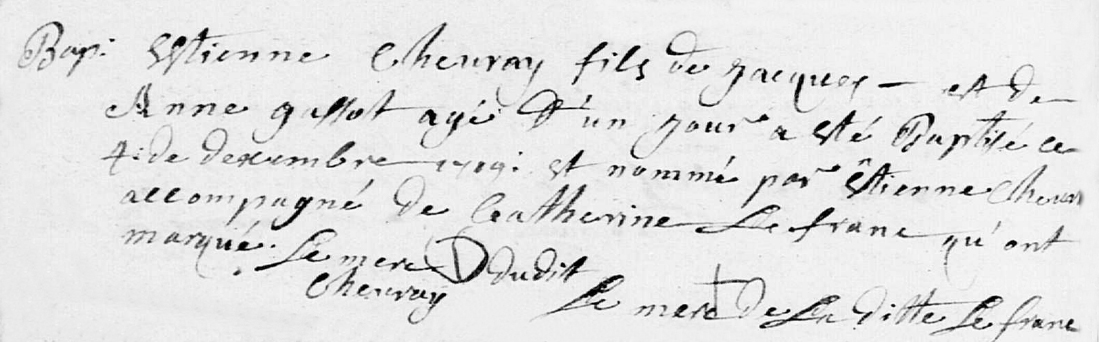 Bap: Estienne Cheuray fils de Jacques — et de
Anne gassot agé d'un jour a esté Baptisé ce
4: de decembre 1709: et nommé par êtienne
accompagné de Catherine Le franc qu'ont
marqué. Le merc dudit
Cheuray Le merc de La ditte Le franc